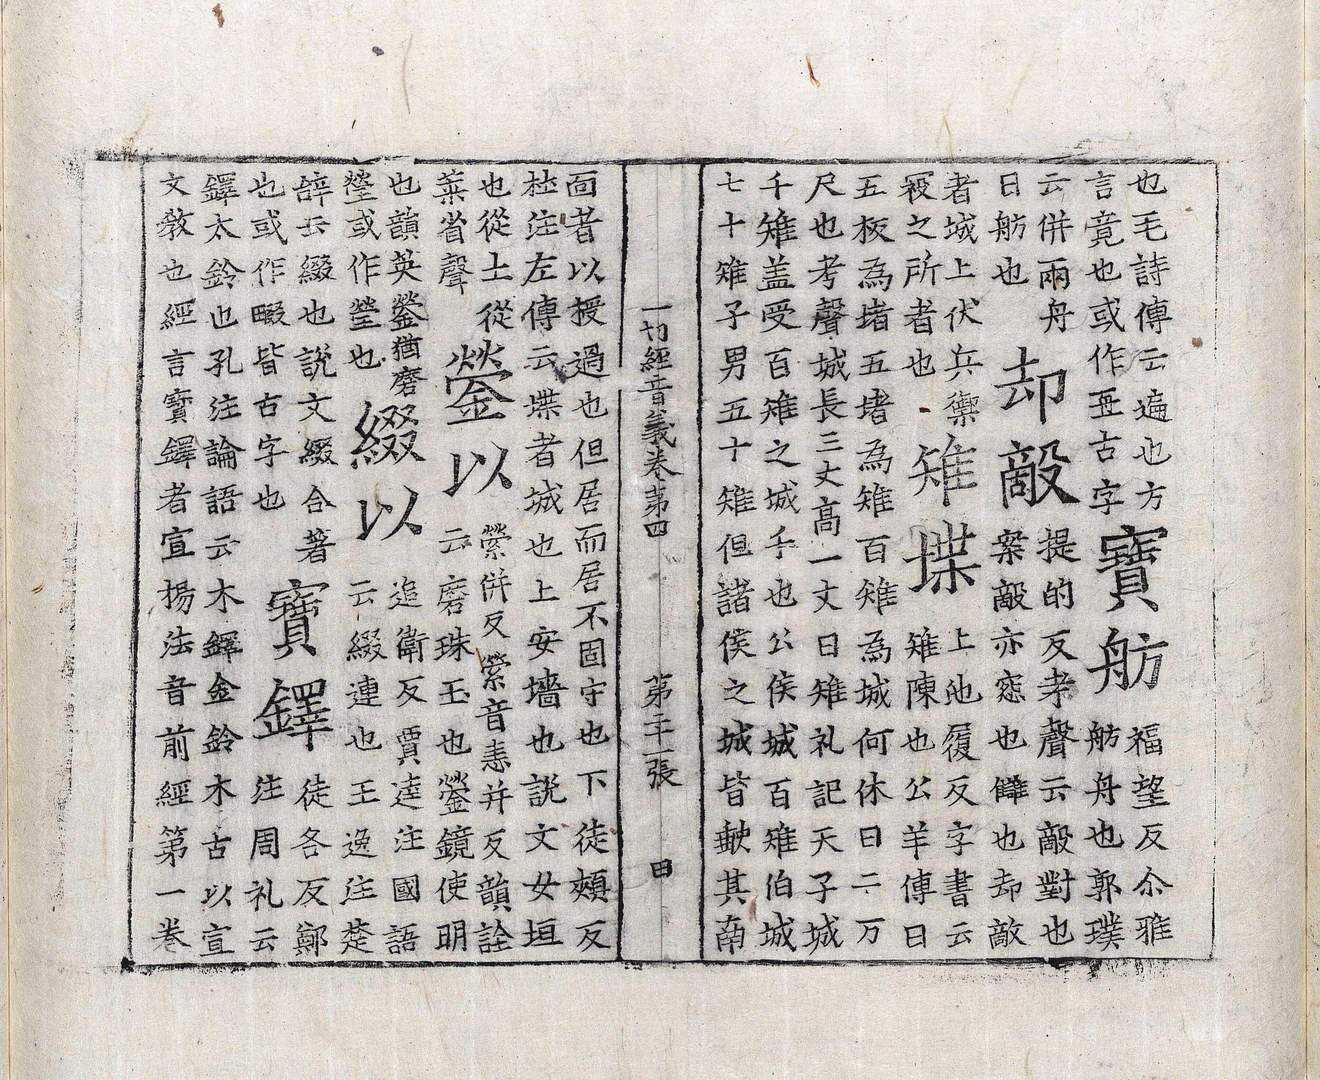 也毛詩傳云遍也方
言竟也或作亙古字
寶舫
福望反尒雅
舫舟也郭璞
云併兩舟
曰舫也
却敵
提的反考聲云敵對也
案敵亦也讎也却敵
者城上伏兵禦
寇之所者也
雉堞
上池履反字書云
雉陳也公羊傳曰
五板為堵五堵為雉百雉為城何休曰二万
尺也考聲城長三丈高一丈曰雉礼記天子城
千雉盖受百雉之城千也公侯城百雉伯城
七十雉子男五十雉但諸侯之城皆其南
一切經音義卷第四 第二十一張 田
面者以授過也但居而居不固守也下徒頰反
注左傳云堞者城也上安墻也說文女垣
也從土從
葉省聲
鎣以
縈併反縈音恚并反韻詮
云磨珠玉也鎣鏡使明
也韻英鎣猶磨
鎣或作瑩也
綴以
追衛反賈逵注國語
云綴連也王逸注楚
辝云綴也說文綴合著
也或作畷皆古字也
寶鐸
徒各反鄭
注周礼云
鐸太鈴也孔注論語云木鐸金鈴木古以宣
文敎也經言寶鐸者宣揚法音前經第一卷